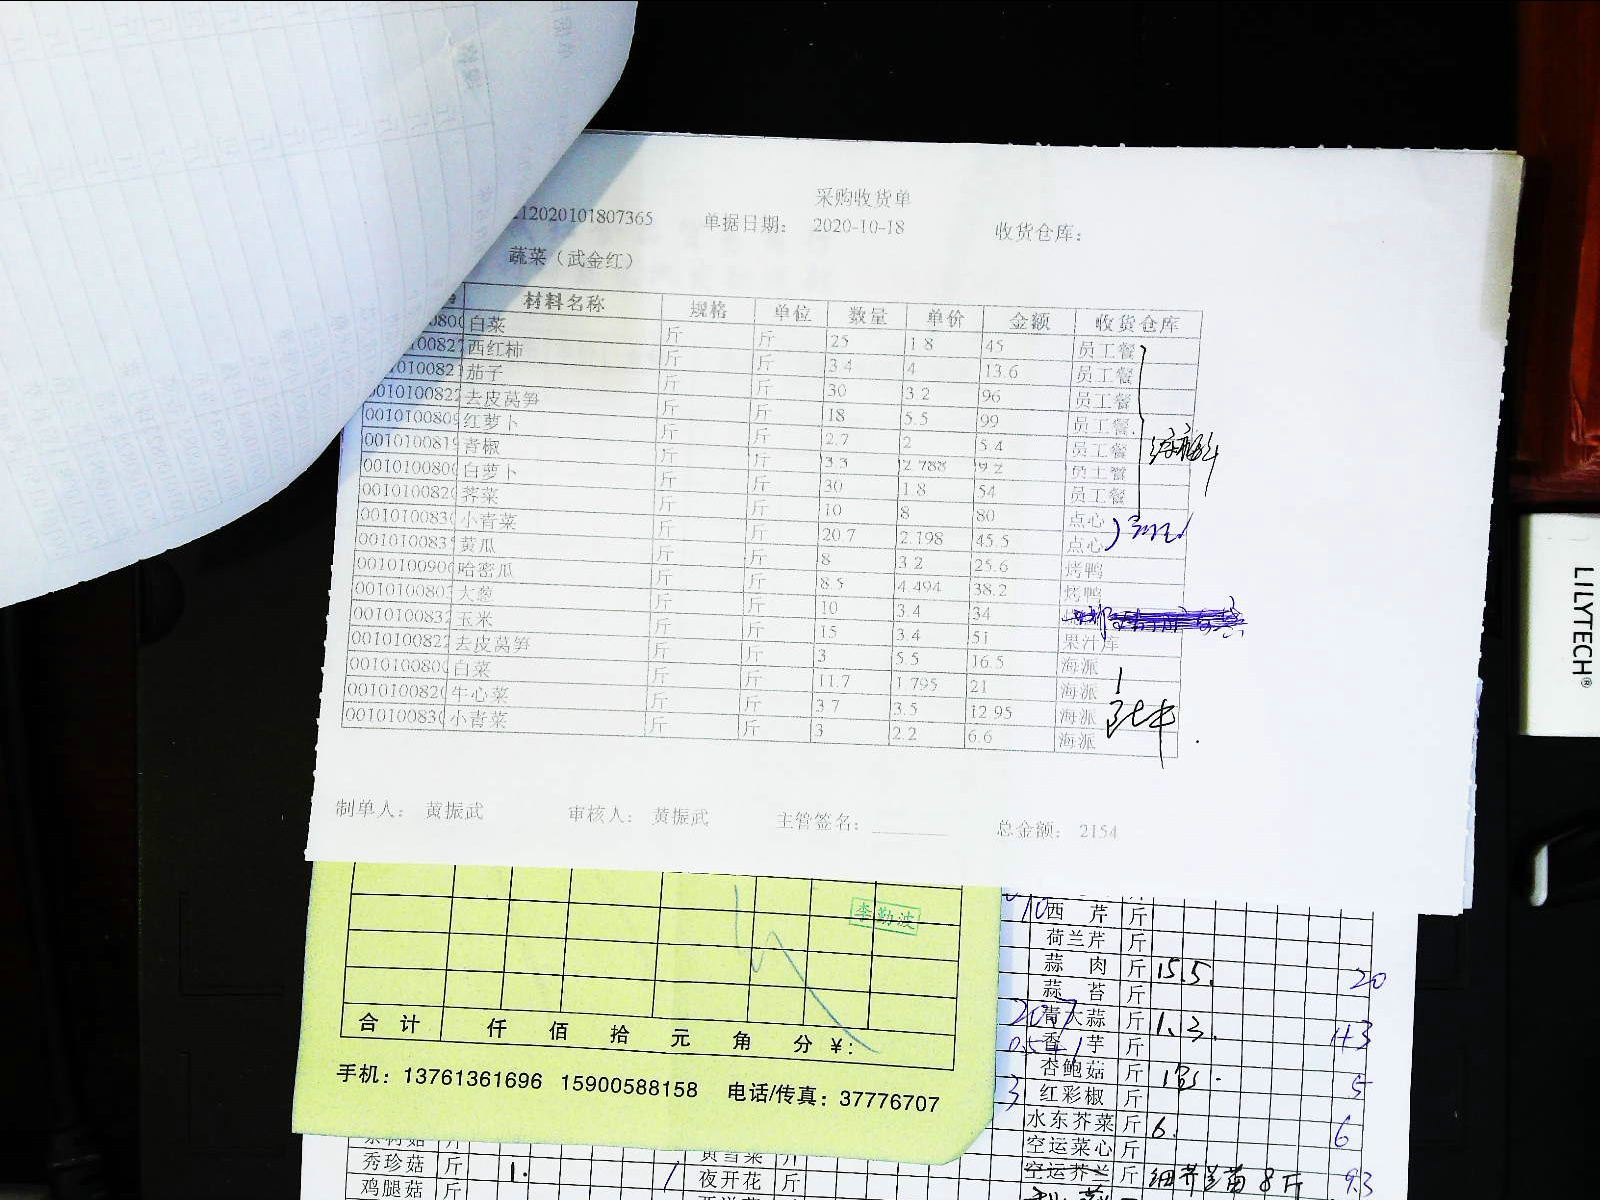 采购收货单
12020101807365 单据日期： 2020-10-18 收货仓库：
蔬菜（武金红）
材料名称 规格 单位 数量 单价 金额 收货仓库
白菜 斤 斤 25 1.8 45 员工餐
西红柿 斤 斤 3.4 4 13.6 员工餐
茄子 斤 斤 30 3.2 96 员工餐
去皮莴笋 斤 斤 18 5.5 99 员工餐
红萝卜 斤 斤 2.7 2 5.4 员工餐
青椒 斤 斤 3.3 2.788 9.2 员工餐
白萝卜 斤 斤 30 1.8 54 员工餐
荠菜 斤 斤 10 8 80 点心
小青菜 斤 斤 20.7 2.198 45.5 点心
黄瓜 斤 斤 8 3.2 25.6 烤鸭
哈密瓜 斤 斤 8.5 4.494 38.2 烤鸭
大葱 斤 斤 10 3.4 34
玉米 斤 斤 15 3.4 51 果汁库
去皮莴笋 斤 斤 3 5.5 16.5 海派
白菜 斤 斤 11.7 1.795 21 海派
牛心菜 斤 斤 3.7 3.5 12.95 海派
小青菜 斤 斤 3 2.2 6.6 海派
制单人： 黄振武 审核人： 黄振武 主管签名： 总金额： 2154
LILYTECH®
李勤波
合计 仟 佰 拾 元 角 分 ¥：
手机：13761361696 15900588158 电话/传真：37776707
西芹 斤
荷兰芹 斤
蒜肉 斤 15.5 20
蒜苔 斤
青大蒜 斤 1.3
香芋 斤
杏鲍菇 斤 5
红彩椒 斤
水东芥菜 斤 6 6
空运菜心 斤
空运芥兰 斤 8斤 9.3
秀珍菇 斤 1
夜开花 斤
鸡腿菇 斤